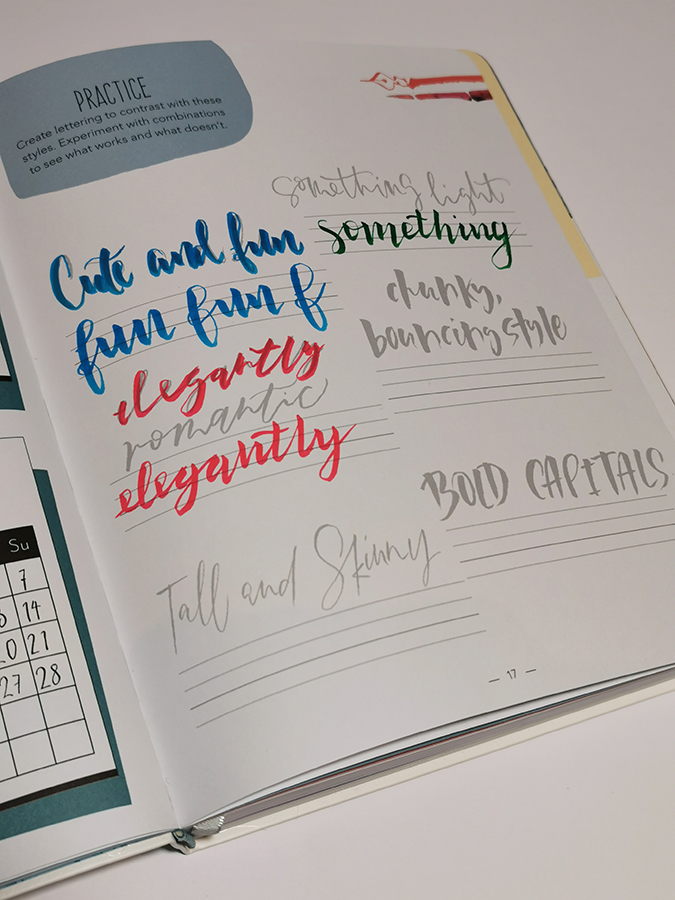 PRACTICE
Create lettering to contrast with these
styles. Experiment with combinations
to see what works and what doesn't.
something light
something
Cute and fun
fun fun f
chunky,
bouncing style
elegantly
romantic
elegantly
BOLD CAPITALS
Tall and Skinny
Su
7
14
20 21
27 28
— 17 —